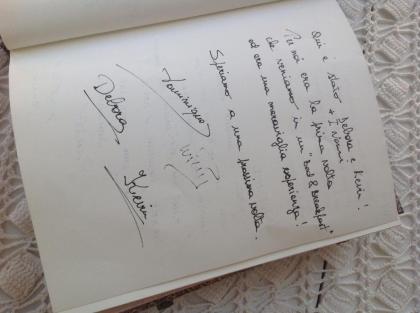 Qui è stato Debora e Kevin!
Per noi era la prima volta
che veniamo in un "Bed & Breakfast"
ed era una meraviglia esperienza!
Speriamo a una prossima volta.
Dominique
Debora
Kevin